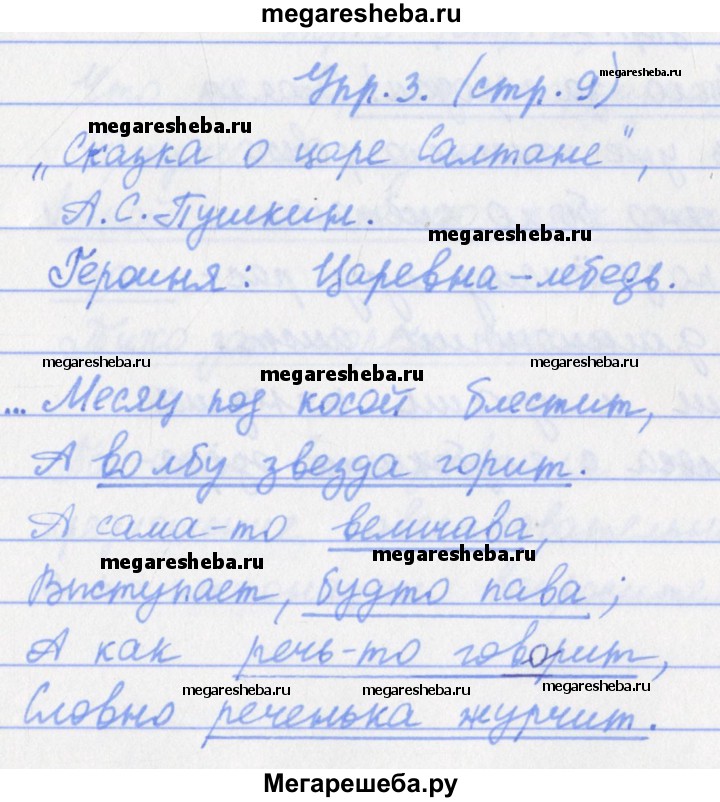 megaresheba.ru
Упр. 3. (стр. 9)
megaresheba.ru
megaresheba.ru
„Сказка о царе Салтане",
А.С. Пушкин.
megaresheba.ru
Героиня: Царевна-лебедь.
megaresheba.ru
megaresheba.ru
megaresheba.ru
... Месяц под косой блестит,
А во лбу звезда горит.
А сама-то величава,
megaresheba.ru
megaresheba.ru
Выступает, будто пава;
А как речь-то говорит,
megaresheba.ru
megaresheba.ru
megaresheba.ru
Словно реченька журчит.
Мегарешеба.ру